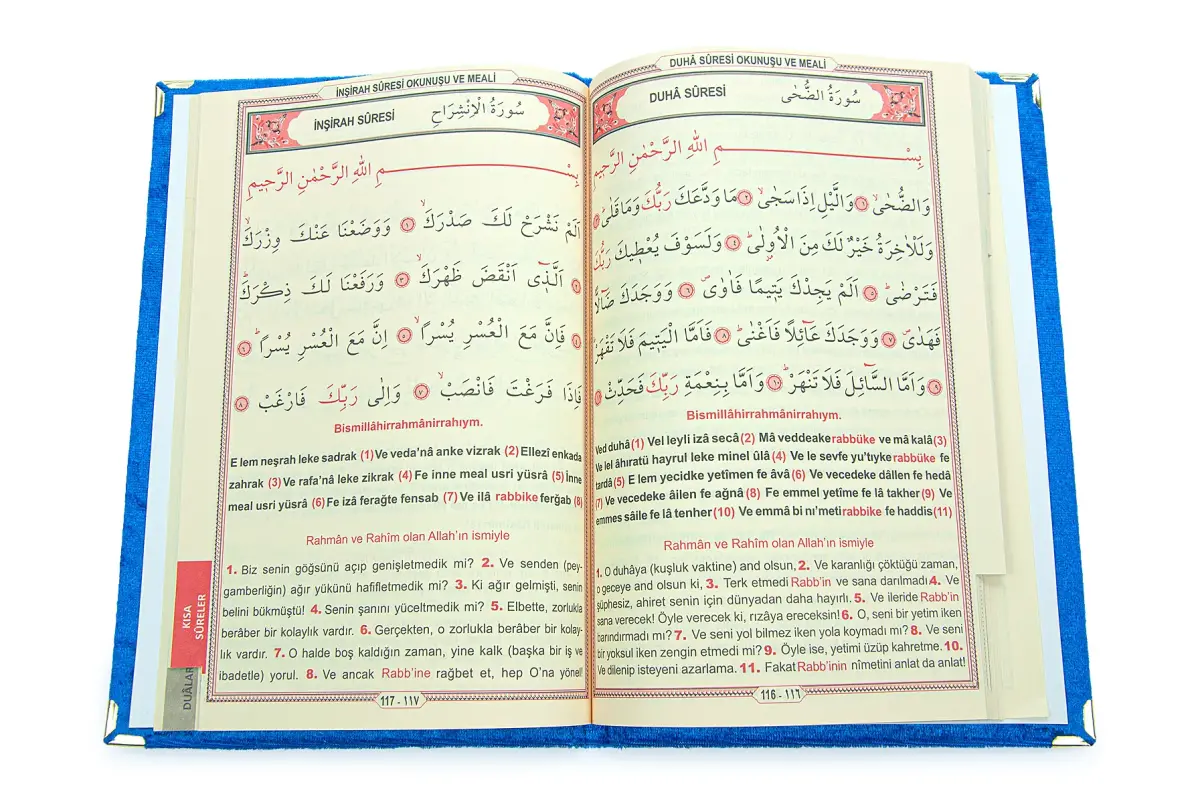 DUHÂ SÛRESİ OKUNUŞU VE MEALİ
DUHÂ SÛRESİ سُورَةُ الضُّحٰى
بِسْمِ اللّٰهِ الرَّحْمٰنِ الرَّحٖيمِ
وَالضُّحٰىۙ ﴿١﴾ وَالَّيْلِ اِذَا سَجٰىۙ ﴿٢﴾ مَا وَدَّعَكَ رَبُّكَ وَمَا قَلٰىۜ ﴿٣﴾
وَلَلْاٰخِرَةُ خَيْرٌ لَكَ مِنَ الْاُو۫لٰىۜ ﴿٤﴾ وَلَسَوْفَ يُعْطٖيكَ رَبُّكَ
فَتَرْضٰىۜ ﴿٥﴾ اَلَمْ يَجِدْكَ يَتٖيمًا فَاٰوٰىۖ ﴿٦﴾ وَوَجَدَكَ ضَٓالًّا
فَهَدٰىۖ ﴿٧﴾ وَوَجَدَكَ عَٓائِلًا فَاَغْنٰىۜ ﴿٨﴾ فَاَمَّا الْيَتٖيمَ فَلَا تَقْهَرْ
﴿٩﴾ وَاَمَّا السَّٓائِلَ فَلَا تَنْهَرْۜ ﴿١٠﴾ وَاَمَّا بِنِعْمَةِ رَبِّكَ فَحَدِّثْ
Bismillâhirrahmânirrahıym.
Ved duhâ(1) Vel leyli izâ secâ(2) Mâ veddeakerabbüke ve mâ kalâ(3)
Ve lel âhıratü hayrul leke minel ûlâ(4) Ve le sevfe yu'tıyke rabbüke fe
tardâ(5) E lem yecidke yetîmen fe âvâ(6) Ve vecedeke dâllen fe hedâ
(7) Ve vecedeke âilen fe ağnâ(8) Fe emmel yetîme fe lâ takher(9) Ve
emmes sâile fe lâ tenher(10) Ve emmâ bi nı'metirabbike fe haddis(11)
Rahmân ve Rahîm olan Allah'ın ismiyle
1. O duhâya (kuşluk vaktine) and olsun, 2. Ve karanlığı çöktüğü zaman,
o geceye and olsun ki, 3. Terk etmedi Rabb'in ve sana darılmadı 4. Ve
şüphesiz, ahiret senin için dünyadan daha hayırlı. 5. Ve ileride Rabb'in
sana verecek! Öyle verecek ki, rızâya ereceksin! 6. O, seni bir yetim iken
barındırmadı mı? 7. Ve seni yol bilmez iken yola koymadı mı? 8. Ve seni
bir yoksul iken zengin etmedi mi? 9. Öyle ise, yetimi üzüp kahretme. 10.
Ve dilenip isteyeni azarlama. 11. Fakat Rabb'inin nîmetini anlat da anlat!
116 - ١١٦
İNŞİRAH SÛRESİ OKUNUŞU VE MEALİ
İNŞİRAH SÛRESİ سُورَةُ الْاِنْشِرَاحِ
بِسْمِ اللّٰهِ الرَّحْمٰنِ الرَّحٖيمِ
اَلَمْ نَشْرَحْ لَكَ صَدْرَكَۙ ﴿١﴾ وَوَضَعْنَا عَنْكَ وِزْرَكَۙ
﴿٢﴾ اَلَّـذٖٓى اَنْقَضَ ظَهْرَكَۙ ﴿٣﴾ وَرَفَعْنَا لَكَ ذِكْرَكَۜ
﴿٤﴾ فَاِنَّ مَعَ الْعُسْرِ يُسْرًاۙ ﴿٥﴾ اِنَّ مَعَ الْعُسْرِ يُسْرًاۜ ﴿٦﴾
فَاِذَا فَرَغْتَ فَانْصَبْۙ ﴿٧﴾ وَاِلٰى رَبِّكَ فَارْغَبْ ﴿٨﴾
Bismillâhirrahmânirrahıym.
E lem neşrah leke sadrak (1)Ve veda'nâ anke vizrak (2) Ellezî enkada
zahrak (3)Ve rafa'nâ leke zikrak (4) Fe inne meal usri yüsrâ (5)İnne
meal usri yüsrâ (6)Fe izâ ferağte fensab (7)Ve ilâ rabbike ferğab (8)
Rahmân ve Rahîm olan Allah'ın ismiyle
1. Biz senin göğsünü açıp genişletmedik mi? 2. Ve senden (pey-
gamberliğin) ağır yükünü hafifletmedik mi? 3. Ki ağır gelmişti, senin
belini bükmüştü! 4. Senin şanını yüceltmedik mi? 5. Elbette, zorlukla
berâber bir kolaylık vardır. 6. Gerçekten, o zorlukla berâber bir kolay-
lık vardır. 7. O halde boş kaldığın zaman, yine kalk (başka bir iş ve
ibadetle) yorul. 8. Ve ancak Rabb'ine rağbet et, hep O'na yönel!
117 - ١١٧
KISA
SÛRELER
DUÂLAR